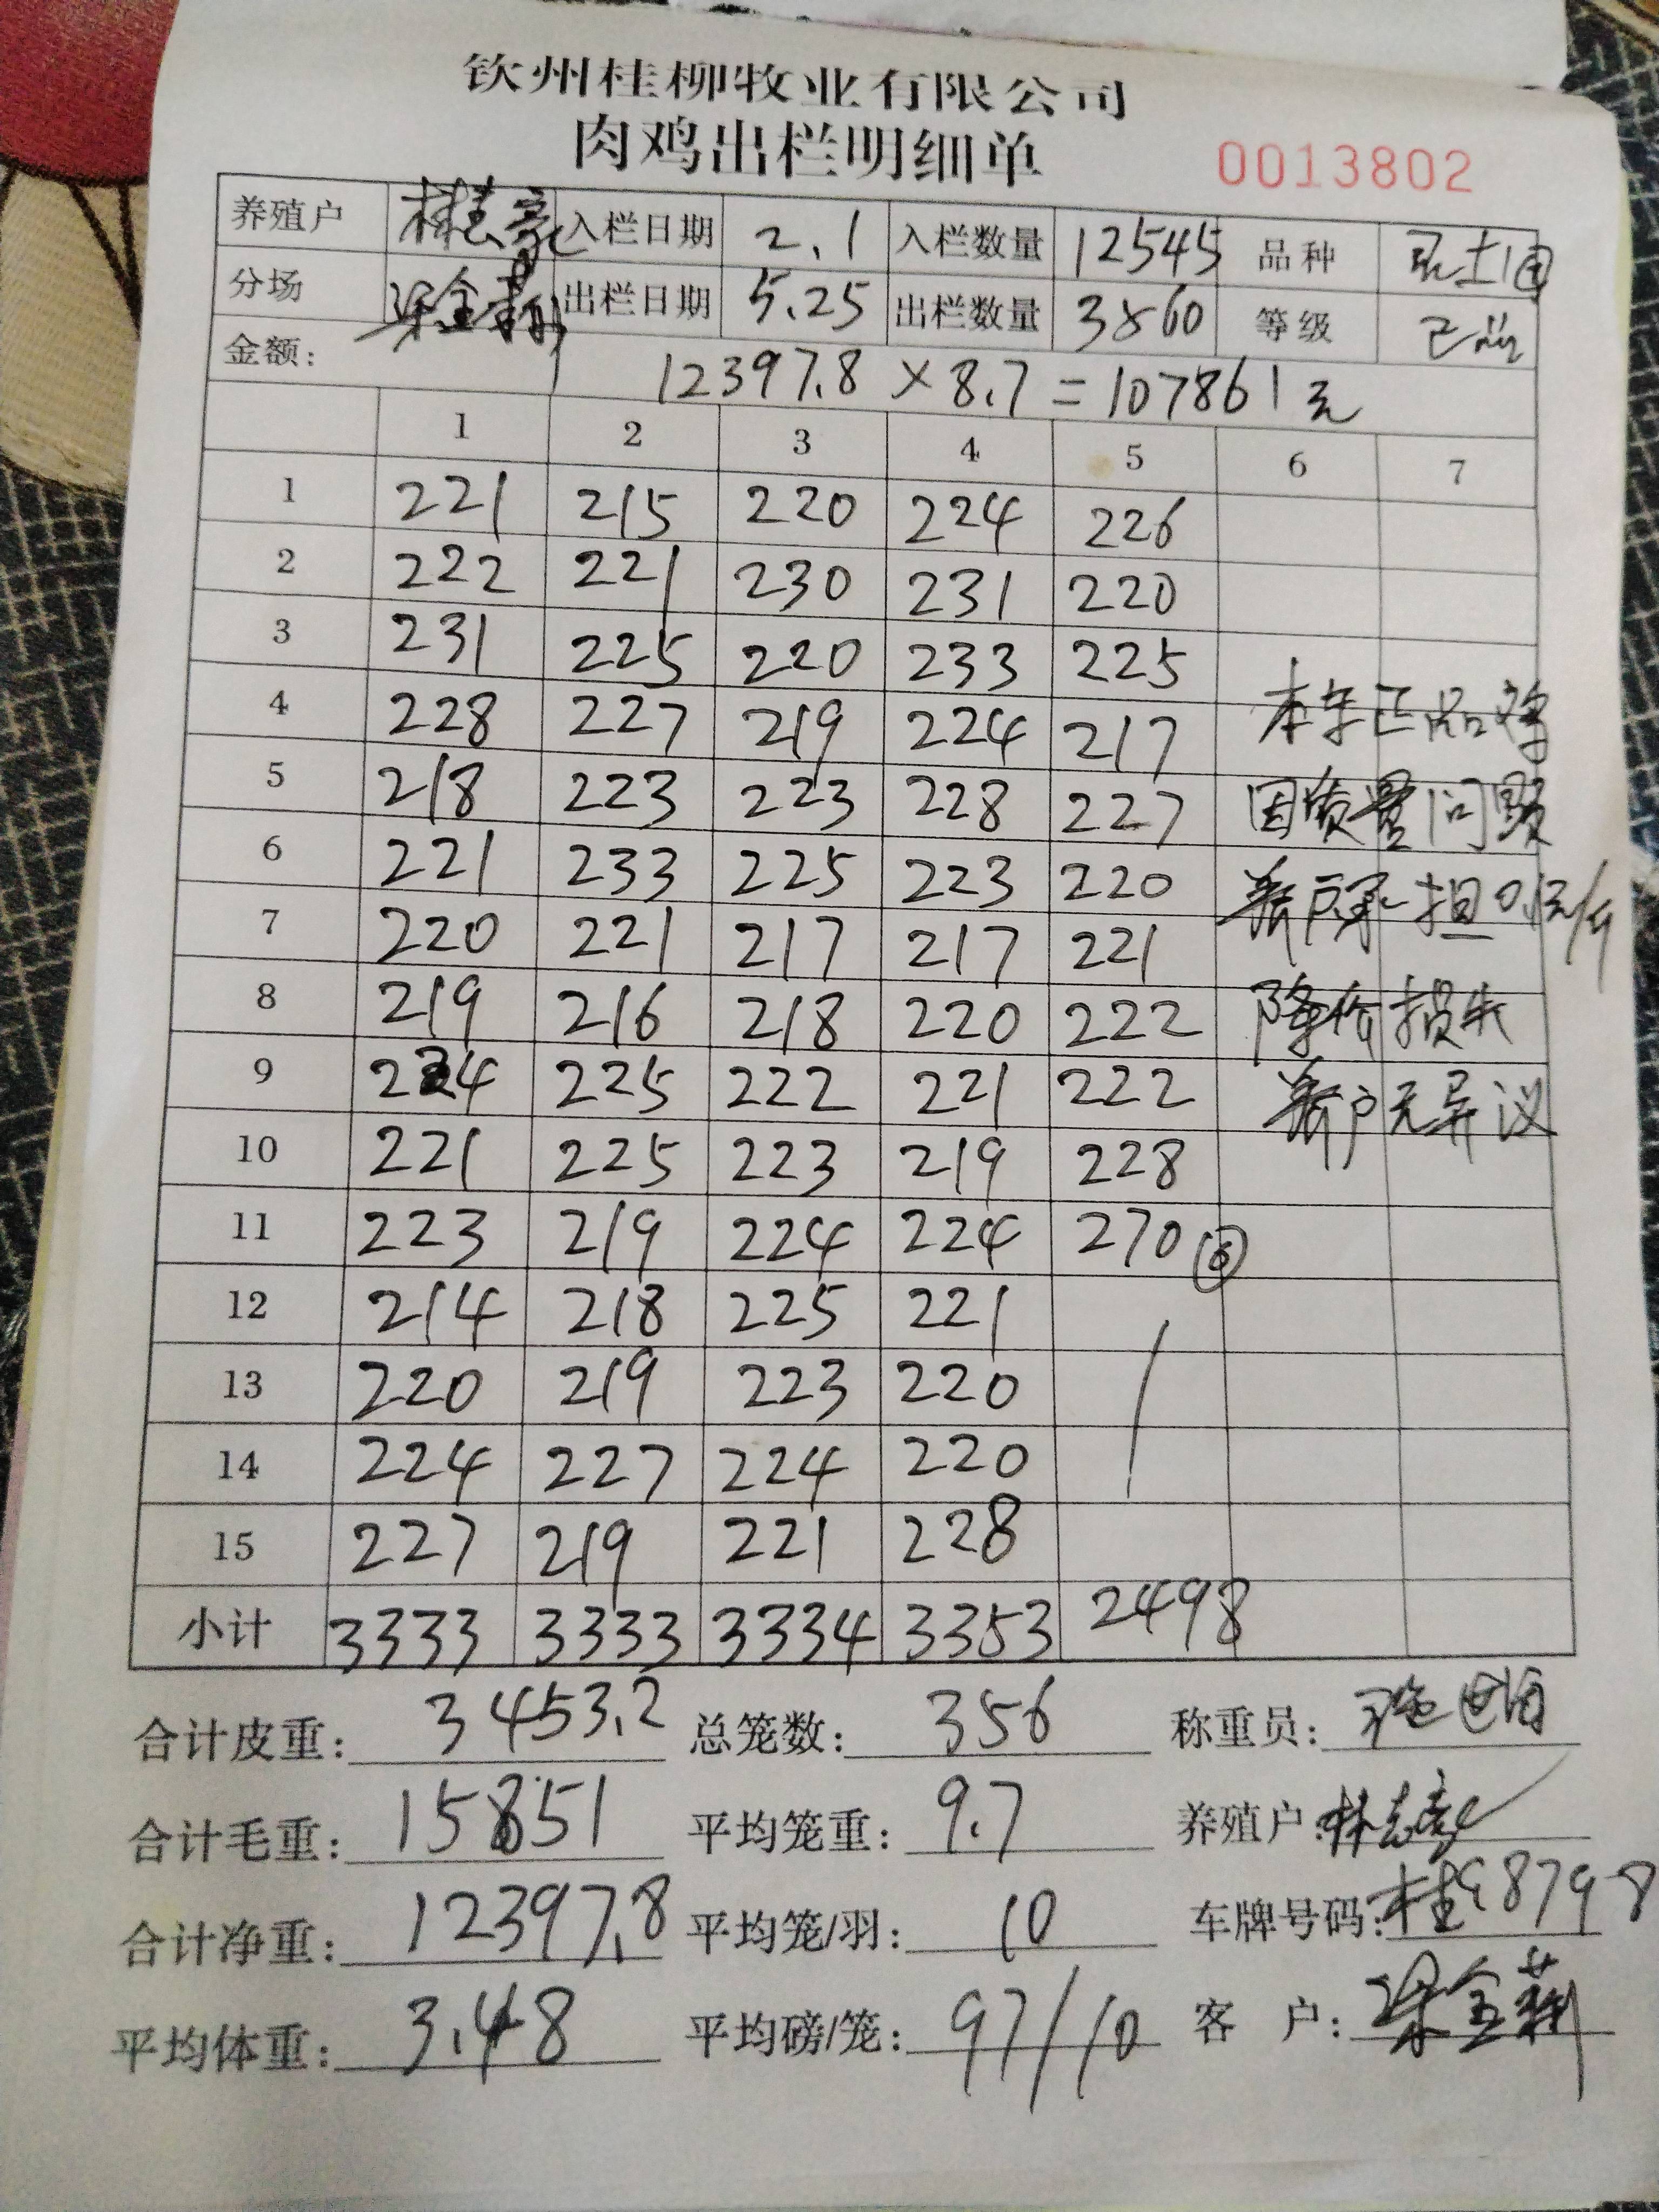 钦州桂柳牧业有限公司
肉鸡出栏明细单
0013802
养殖户 林志豪 入栏日期 2.1 入栏数量 12545 品种 土1
分场 梁金莉 出栏日期 5.25 出栏数量 3560 等级
金额: 12397.8 × 8.7 = 107861元
1 2 3 4 5 6 7
1 221 215 220 224 226
2 222 221 230 231 220
3 231 225 220 233 225
4 228 227 219 224 217 本车正品鸡
5 218 223 223 228 227 因质量问题
6 221 233 225 223 220 养户承担
7 220 221 217 217 221
8 219 216 218 220 222 降价损失
9 224 225 222 221 222 养户无异议
10 221 225 223 219 228
11 223 219 224 224 270 ⑥
12 214 218 225 221
13 220 219 223 220
14 224 227 224 220
15 227 219 221 228
小计 3333 3333 3334 3353 2498
合计皮重: 3453.2 总笼数: 356 称重员:
合计毛重: 15851 平均笼重: 9.7 养殖户: 林志豪
合计净重: 12397.8 平均笼/羽: 10 车牌号码: 桂 8798
平均体重: 3.48 平均磅/笼: 97/10 客 户: 梁金莉